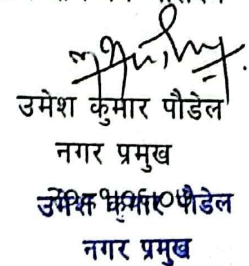 उमेश कुमार पौडेल
नगर प्रमुख
उमेश कुमार पौडेल
नगर प्रमुख